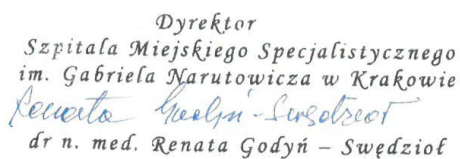 Dyrektor
Szpitala Miejskiego Specjalistycznego
im. Gabriela Narutowicza w Krakowie
Renata Godyń-Swędzioł
dr n. med. Renata Godyń – Swędzioł